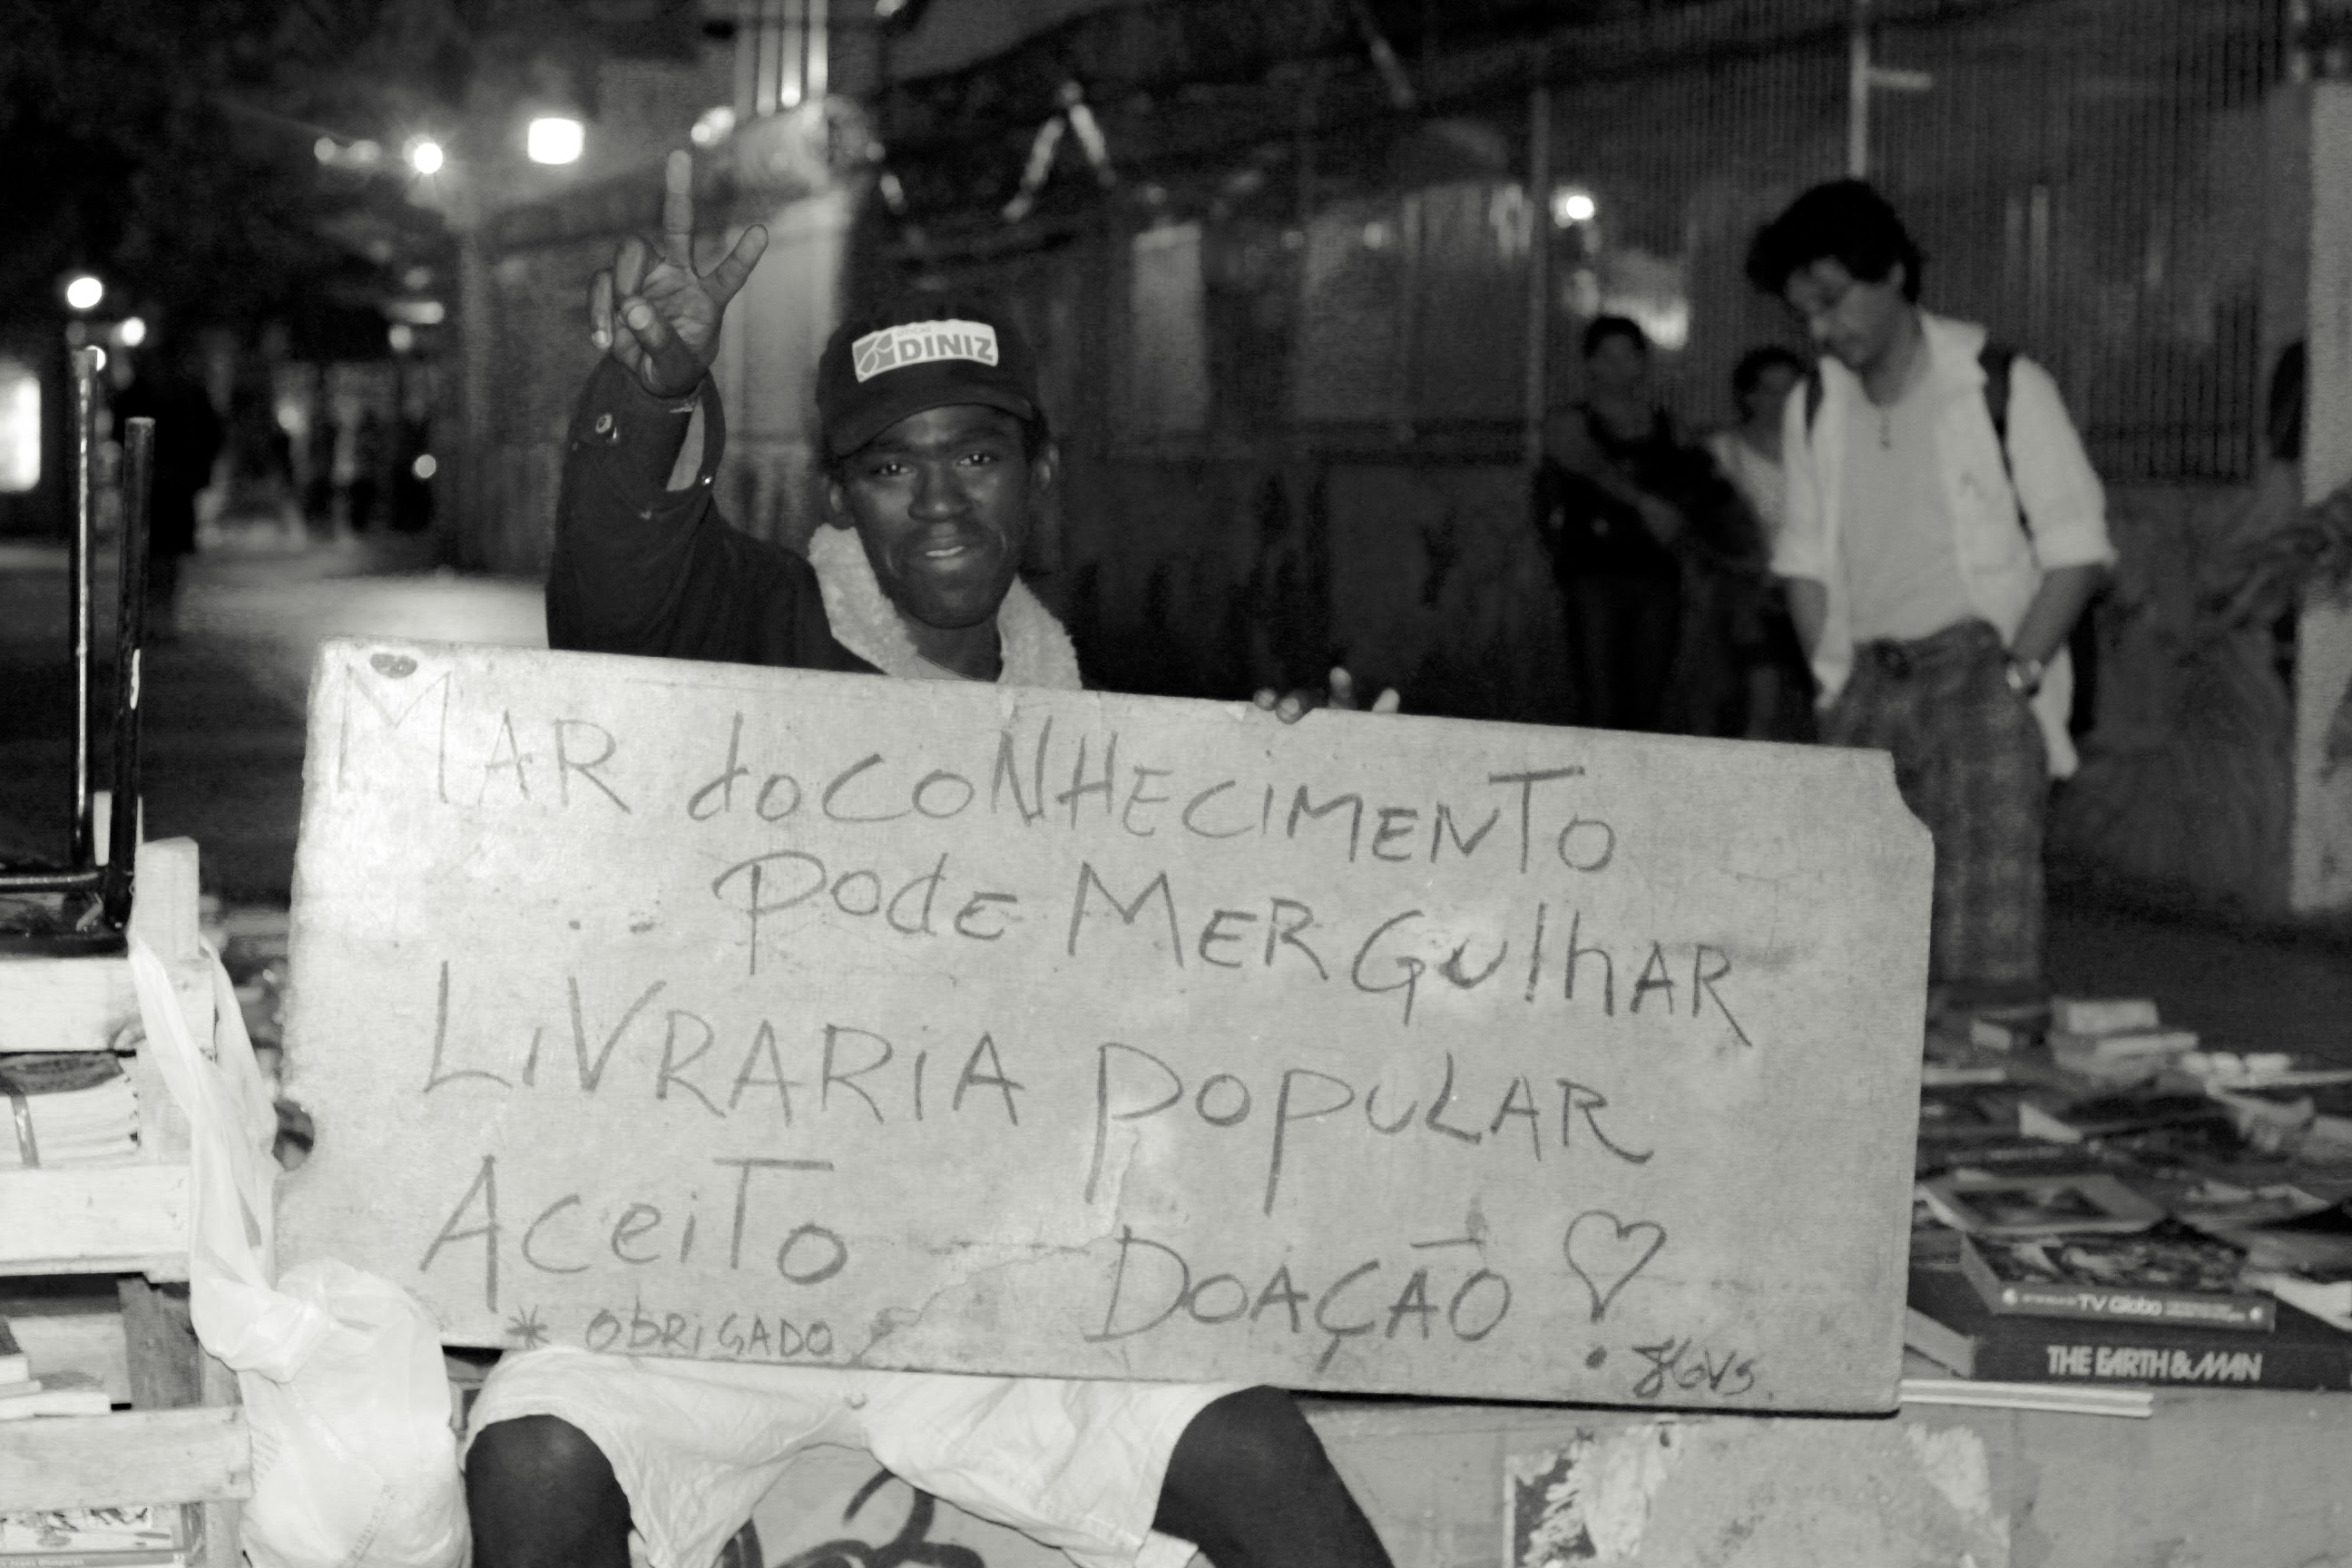 DINIZ
MAR do CONHECIMENTO
PODE MERGUlhAR
LiVRARiA POPULAR
ACeiTo DOAÇÃO
* ObRIGADO
TV Globo
THE EARTH & MAN